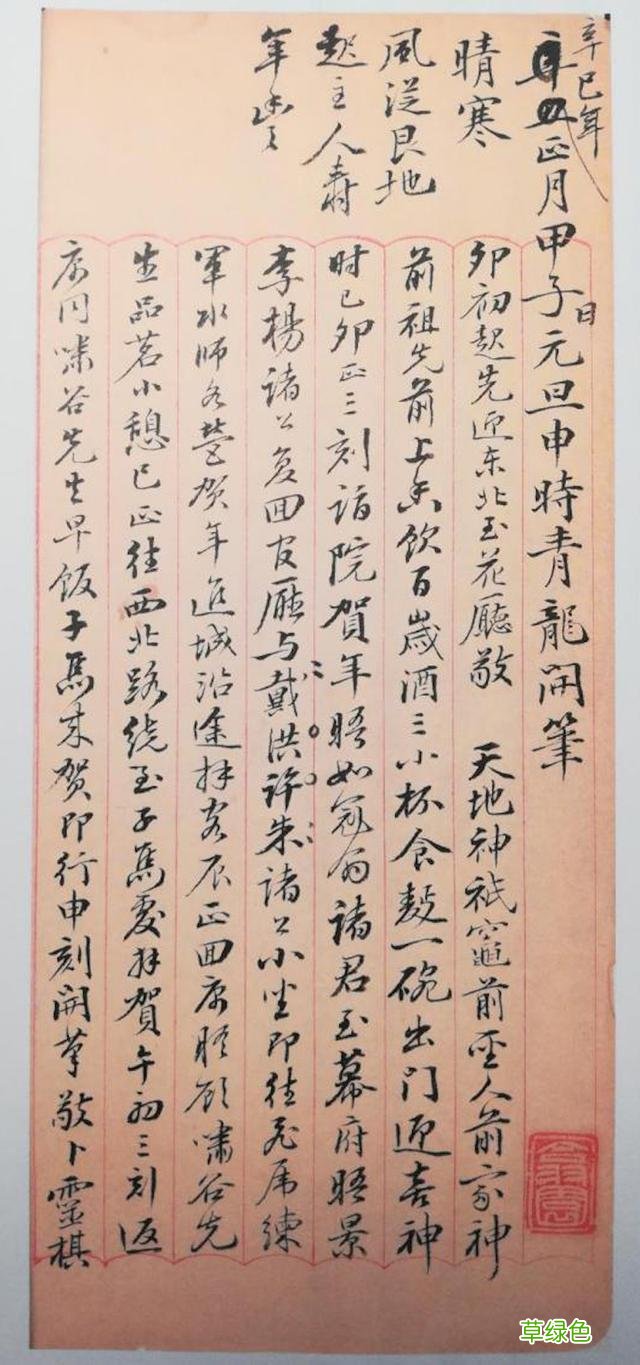 辛巳年
正月甲子日元旦申時青龍開筆
晴寒
風從艮地
起主人壽
年豐
卯初起先迎东北至花廳敬 天地神祇竈前聖人前家神
前祖先前上香飲百歲酒三小杯食麪一碗出门迎喜神
时已卯正三刻詣院賀年晤如冠翁諸君至幕府晤景
李楊诸公复回官廳与戴洪许朱諸公小坐即往飛虎練
軍水師各營贺年進城沿途拜客辰正回寓晤顧嘯谷先
生品茗小憩巳正往西北路绕至子馬處拜賀午初三刻返
寓同嘯谷先生早饭子馬来贺即行申刻開筆敬卜靈棋
草绿色